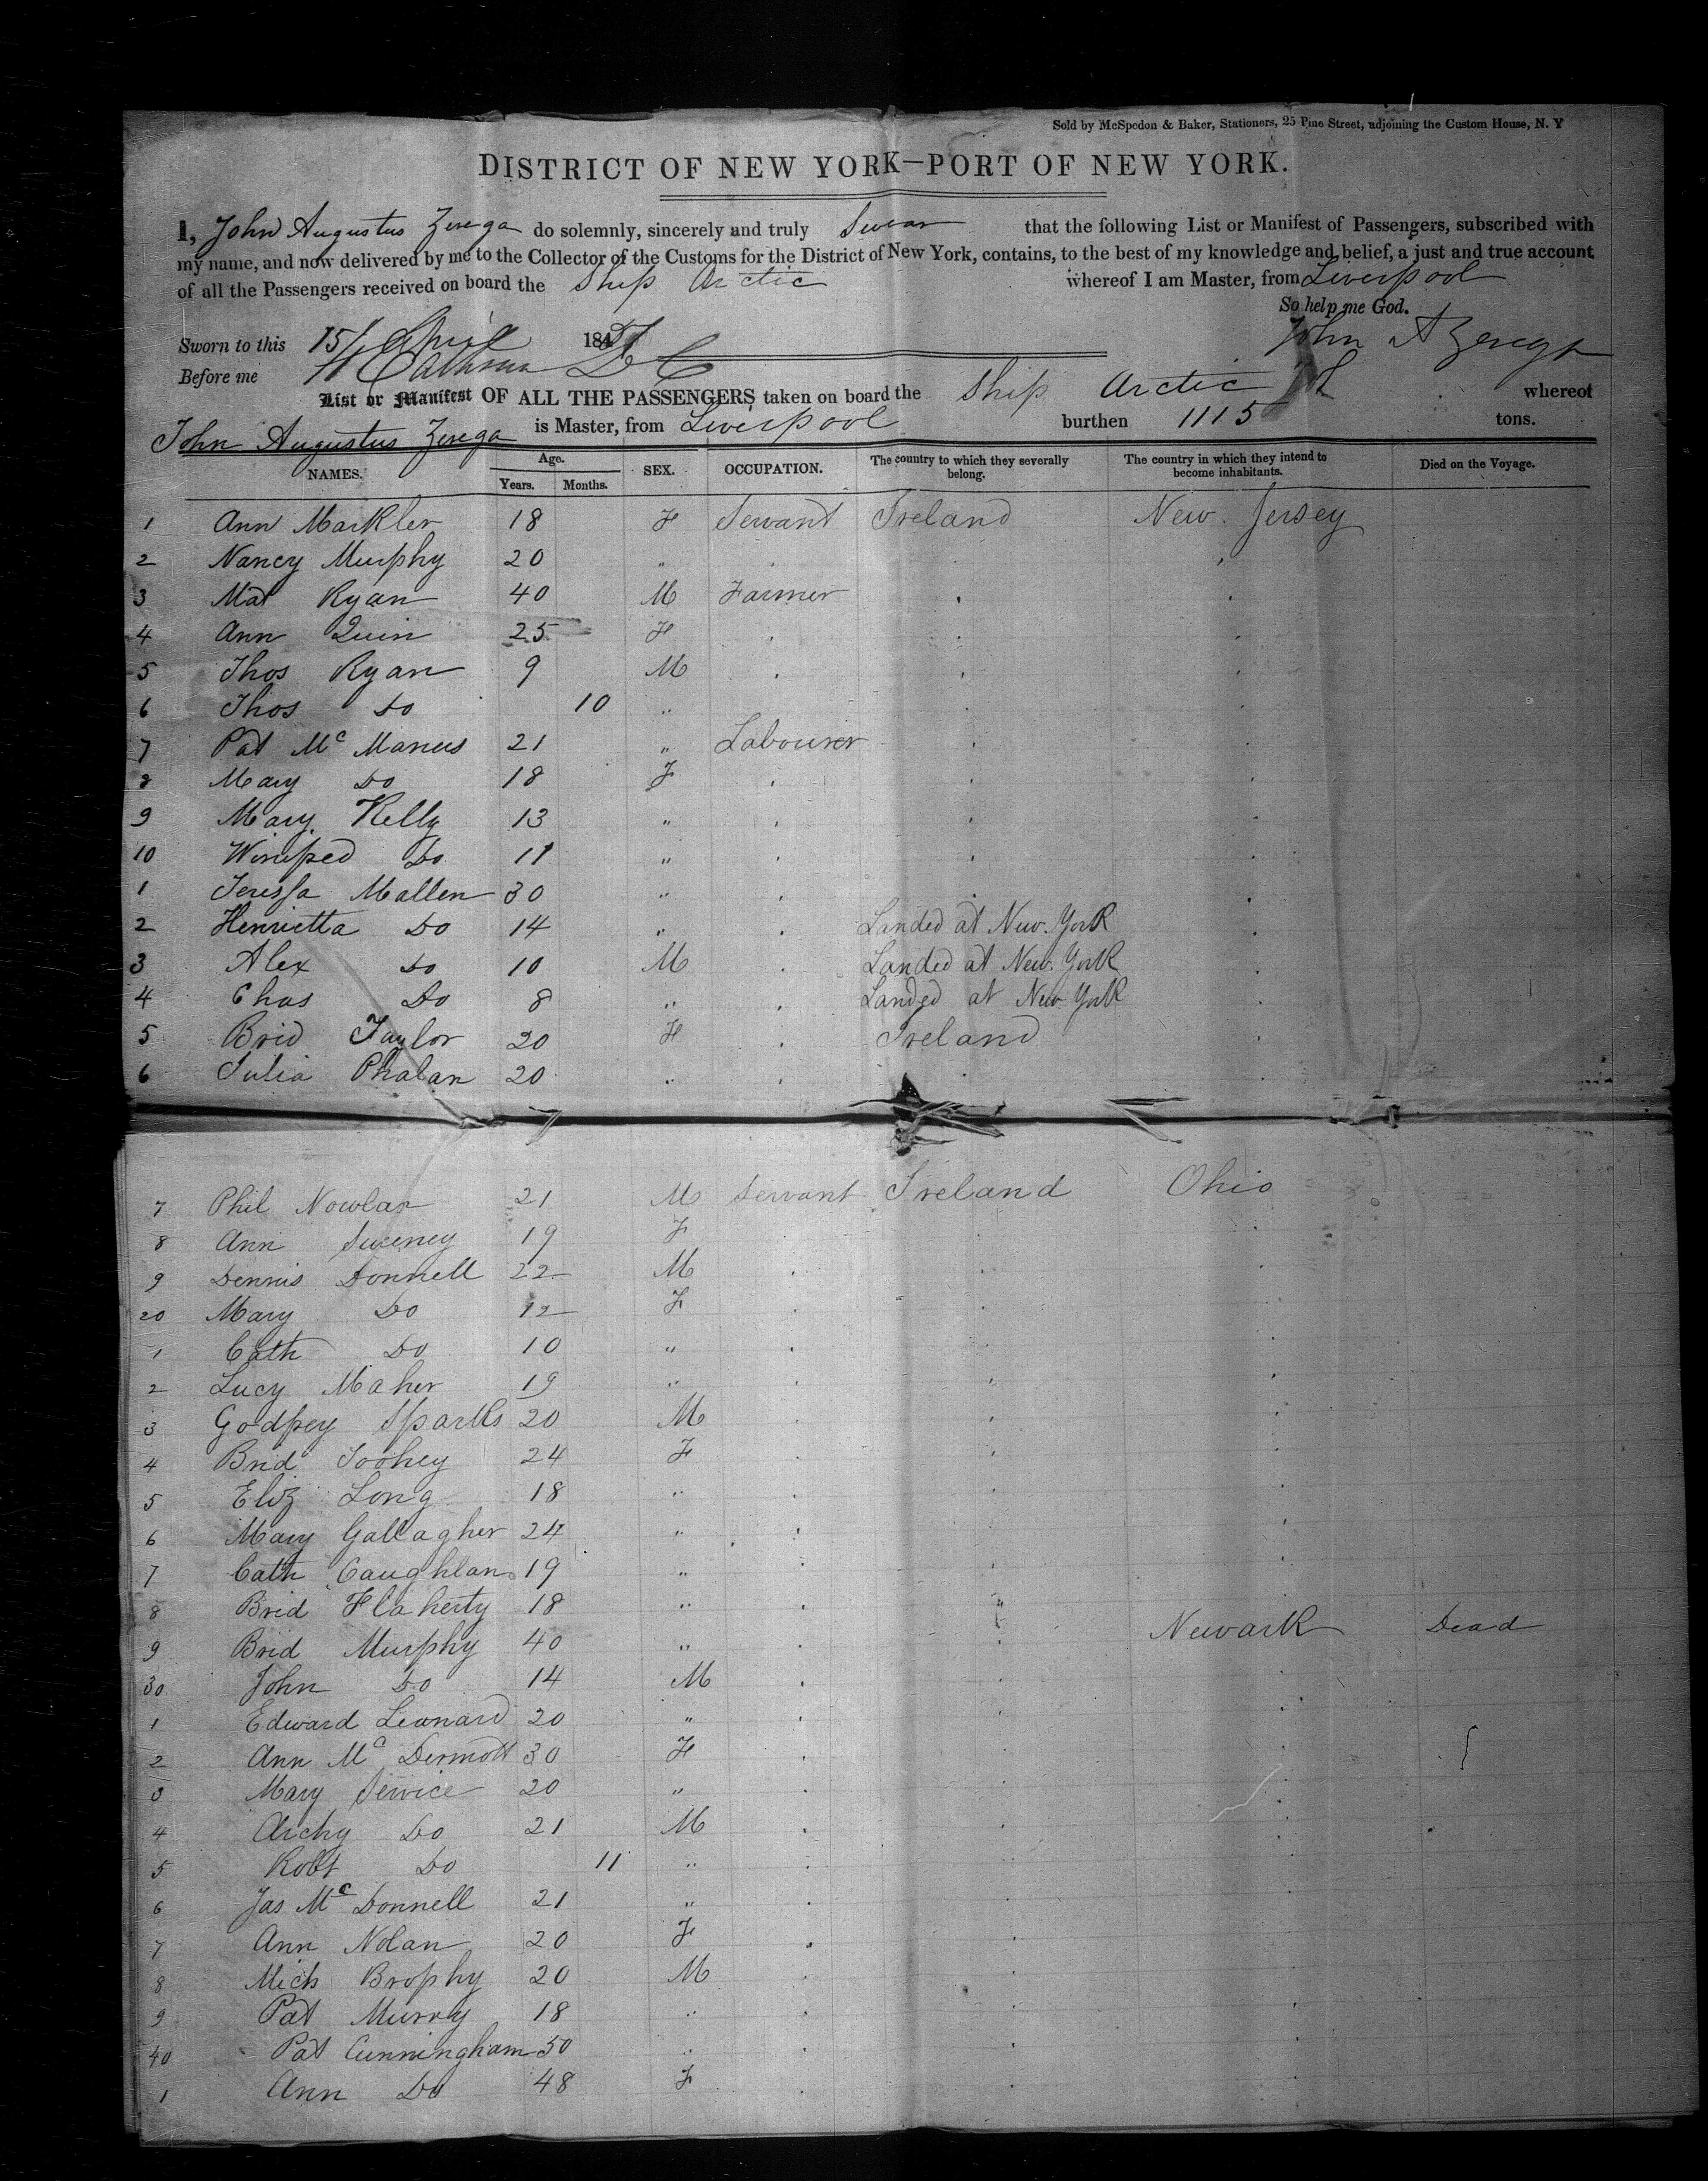 Sold by McSpedon & Baker, Stationers, 25 Pine Street, adjoining the Custom House, N. Y
DISTRICT OF NEW YORK—PORT OF NEW YORK.
I, John Augustus Zerega do solemnly, sincerely and truly Swear that the following List or Manifest of Passengers, subscribed with
my name, and now delivered by me to the Collector of the Customs for the District of New York, contains, to the best of my knowledge and belief, a just and true account
of all the Passengers received on board the Ship Arctic whereof I am Master, from Liverpool
So help me God.
John A Zerega
Sworn to this 15/ April 184
Before me Calhoun D C
List or Manifest OF ALL THE PASSENGERS taken on board the Ship Arctic whereof
John Augustus Zerega is Master, from Liverpool burthen 1115 tons.
NAMES. Age. Years. Months. SEX. OCCUPATION. The country to which they severally belong. The country in which they intend to become inhabitants. Died on the Voyage.
1 Ann Markler 18 F Servant Ireland New Jersey
2 Nancy Murphy 20 "
3 Mat Ryan 40 M Farmer
4 Ann Quin 25 F
5 Thos Ryan 9 M
6 Thos Do 10 "
7 Pat Mc Manus 21 " Labourer
8 Mary Do 18 F
9 Mary Kelly 13 "
10 Winifred Do 11 "
1 Teressa Mallen 30 "
2 Henrietta Do 14 " Landed at New York
3 Alex Do 10 M Landed at New York
4 Chas Do 8 " Landed at New York
5 Brid Taylor 20 F Ireland
6 Julia Phalan 20 "
7 Phil Nowlan 21 M Servant Ireland Ohio
8 Ann Sweney 19 F
9 Dennis Donnell 22 M
20 Mary Do 12 F
1 Cath Do 10 "
2 Lucy Maher 19 "
3 Godfrey Sparks 20 M
4 Brid Toohey 24 F
5 Eliz Long 18 "
6 Mary Gallagher 24 "
7 Cath Caughlan 19 "
8 Brid Flaherty 18 " "
9 Brid Murphy 40 " Newark Dead
30 John Do 14 M
1 Edward Leonard 20 "
2 Ann Mc Dermott 30 F
3 Mary Service 20 "
4 Archy Do 21 M
5 Robt Do 11 "
6 Jas Mc Donnell 21 "
7 Ann Nolan 20 F
8 Mich Brophy 20 M
9 Pat Murry 18 "
40 Pat Cunningham 50 "
1 Ann Do 48 F